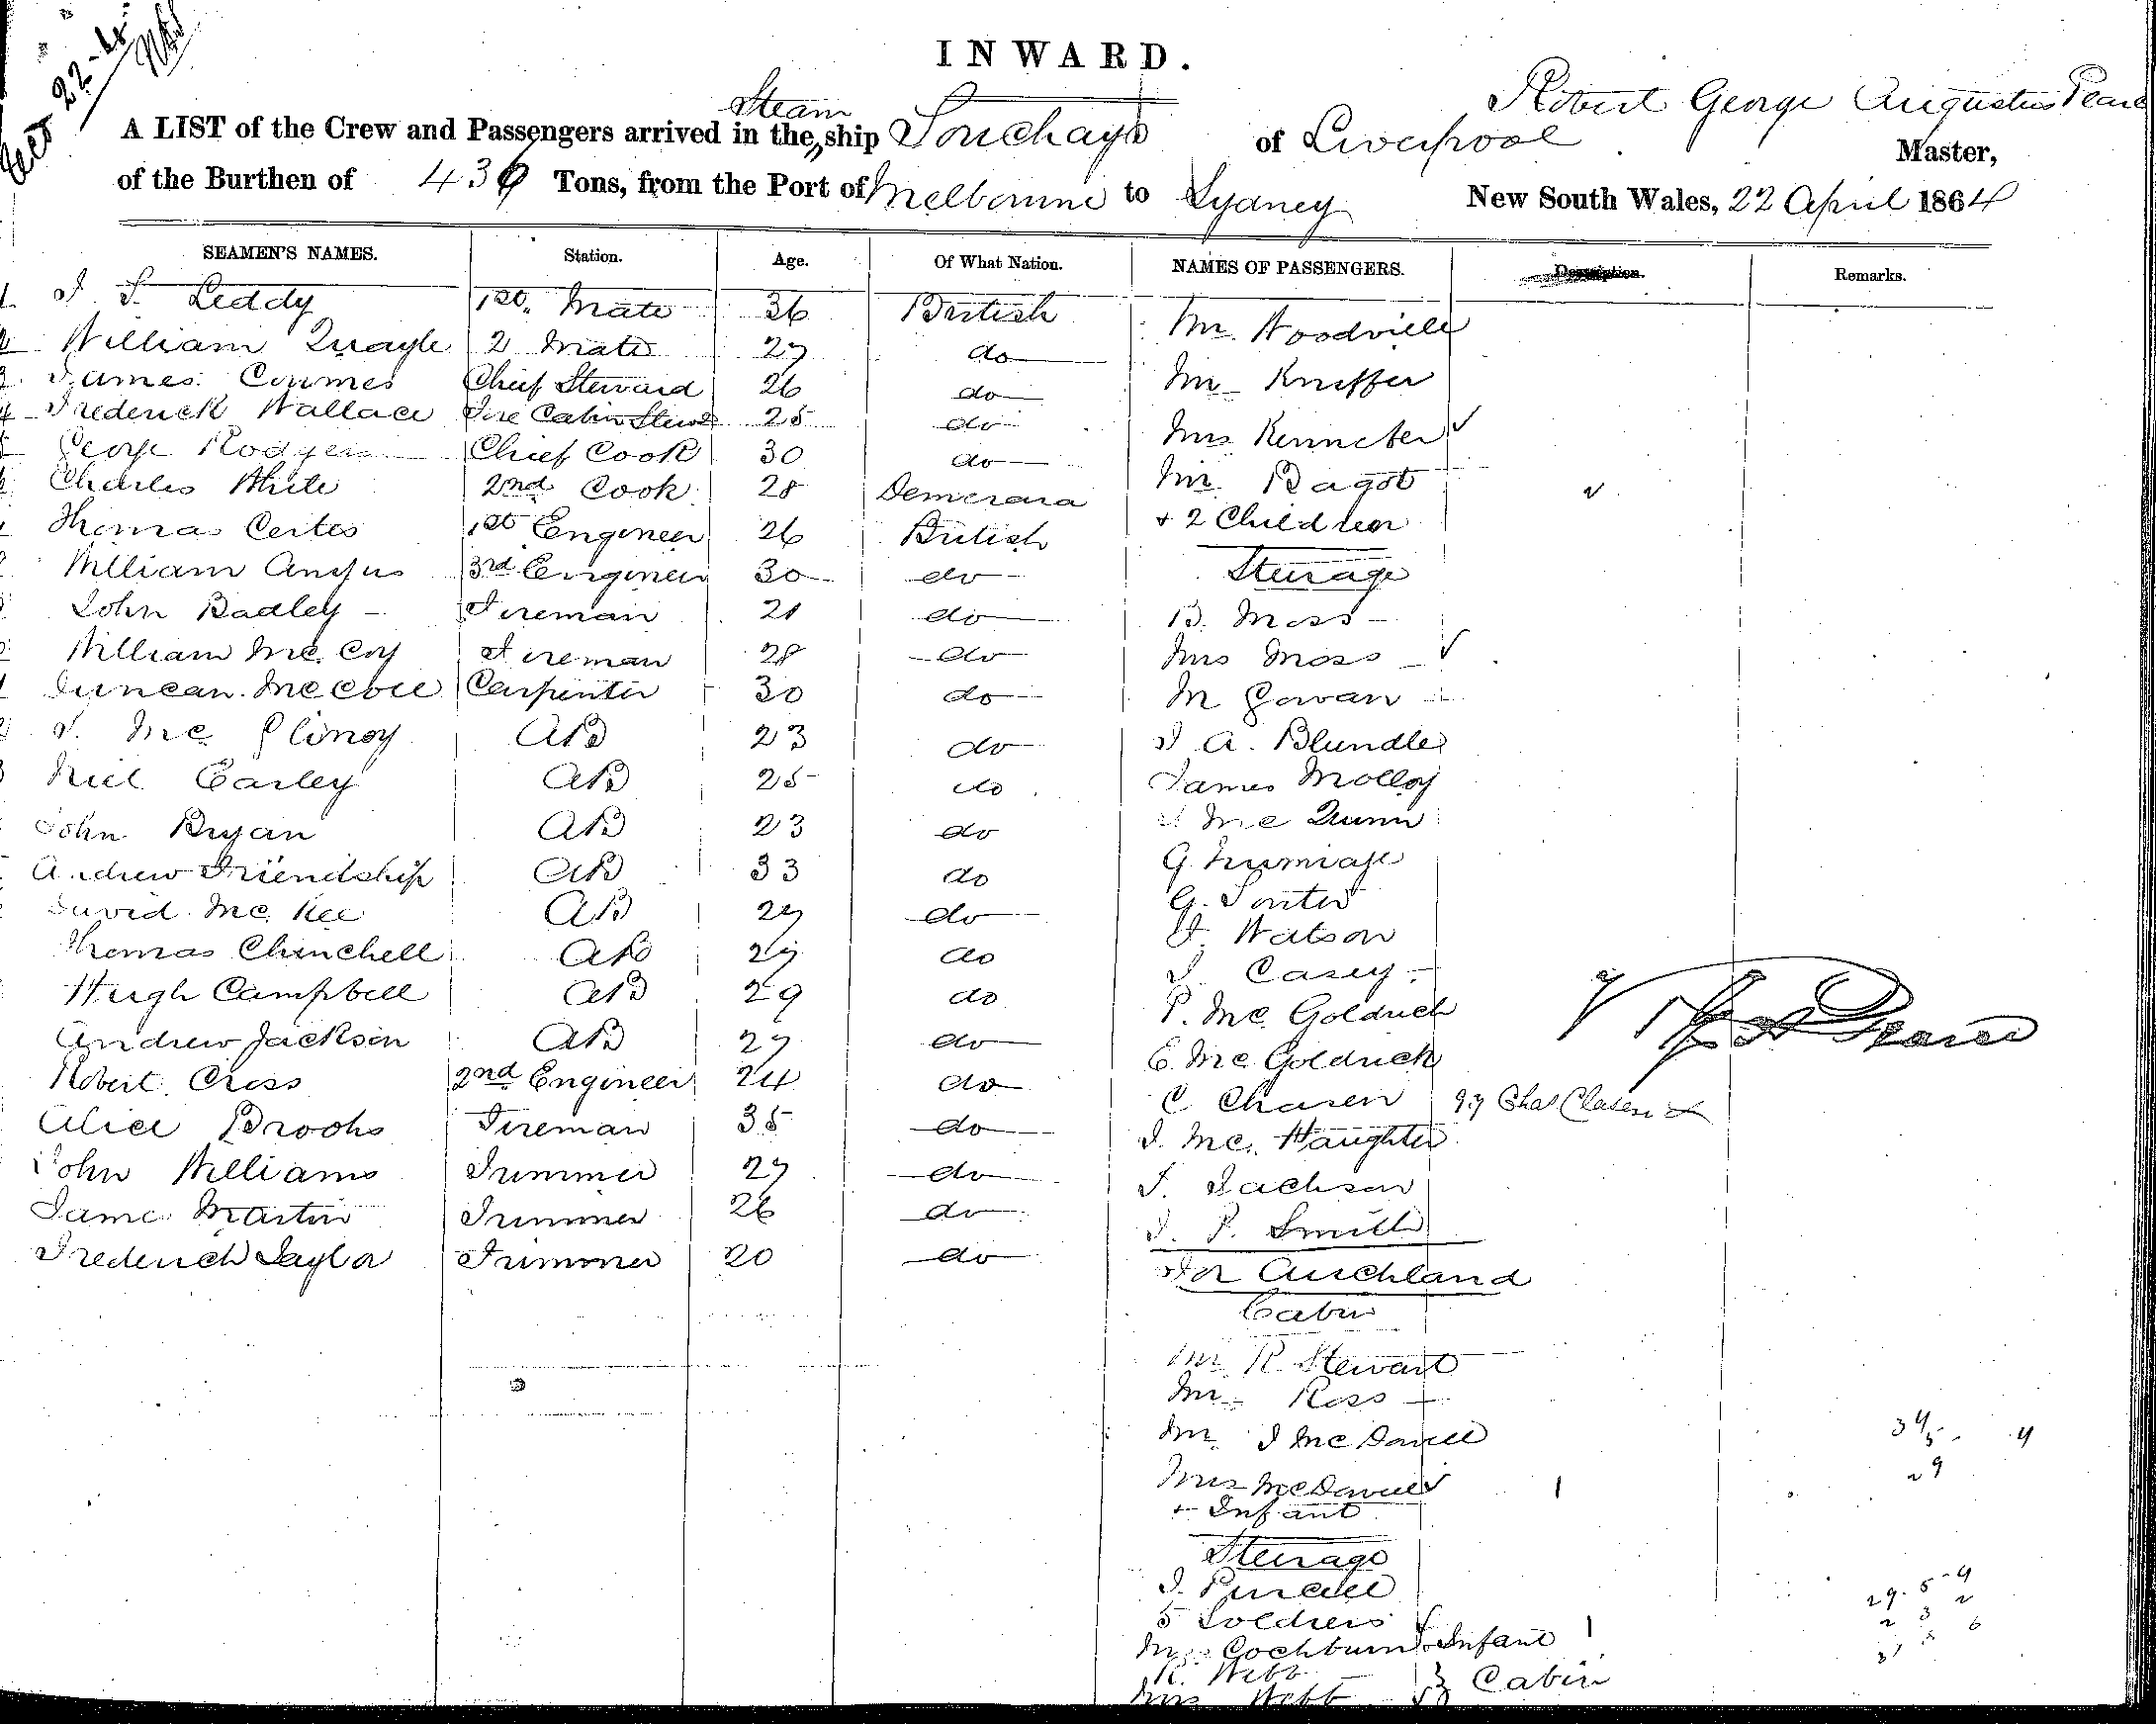 22-4
INWARD.
Robert George Augustus Pearce
A LIST of the Crew and Passengers arrived in the Steam ship Souchays of Liverpool Master,
of the Burthen of 436 Tons, from the Port of Melbourne to Sydney New South Wales, 22 April 1864
SEAMEN'S NAMES. Station. Age. Of What Nation. NAMES OF PASSENGERS. Description. Remarks.
Leddy 1st. Mate 36 British Mr. Woodville
William Quayle 2 Mate 27 do Mr
James Coumes Chief Steward 26 do
Frederick Wallace Fore Cabin Stewd 25 do Mrs
George Rodgers Chief Cook 30 do
Charles White 2nd Cook 28 Demerara Mr. Bagot
Thomas 1st Engineer 26 British + 2 Children
William Angus 3rd Engineer 30 do Steerage
John Badley Fireman 21 do B. Moss
William Mc. Coy Fireman 28 do Mrs Moss
Duncan Mc Coll Carpenter 30 do M Gowan
Mc AB 23 do J A. Blundle
Niel Carley AB 25 do James Molloy
John Bryan AB 23 do Mc Quinn
Andrew Friendship AB 33 do G.
David Mc. Kee AB 29 do G. Souter
Thomas Chinchell AB 29 do Watson
Hugh Campbell AB 29 do J. Casey
P. Mc. Goldrick
Andrew Jackson AB 27 do E. Mc Goldrick
Robert Cross 2nd Engineer 24 do C Chasen Chas Clasen
Alice Brooks Fireman 35 do J. Mc. Haughter
John Williams Trimmer 27 do J. Jackson
James Martin Trimmer 26 do J. P. Smith
Frederick Taylor Trimmer 20 do For Auckland
Cabin
Mr R. Stewart
Mr Ross
Mr. J McDowell
Mrs McDowell 1
+ Infant
Steerage
J. Purcell
5 Soldiers
Mrs Cockburn & Infant 1
R. Webb
Mrs Webb } Cabin